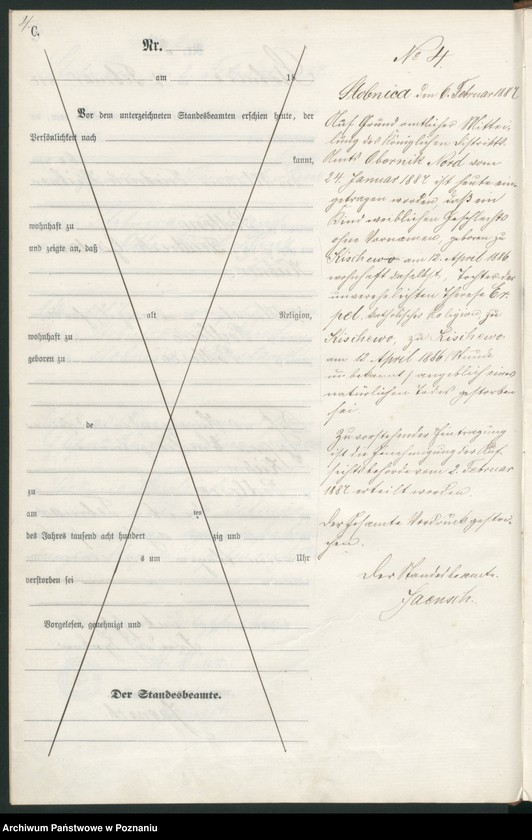 4
C.
Nr.
am 18
Vor dem unterzeichneten Standesbeamten erschien heute, der
Persönlichkeit nach
kannt,
wohnhaft zu
und zeigte an, daß
alt Religion,
wohnhaft zu
geboren zu
de
zu
am ten
des Jahres tausend acht hundert zig und
s um Uhr
verstorben sei
Vorgelesen, genehmigt und
Der Standesbeamte.
No 4.
Slobnica den 6. Februar 1887
Auf Grund amtlicher Mittei-
lung des Königlichen Distrikts
Amts Obornik Nord vom
24. Januar 1887 ist heute ein-
getragen worden, daß ein
Kind weiblichen Geschlechts
ohne Vornamen, geboren zu
Kischewo am 12. April 1886
wohnhaft daselbst, Tochter der
unverehelichten Therese Er-
pel katholischer Religion zu
Kischewo, zu Kischewo
am 12 April 1886 Stunde
unbekannt, angeblich eines
natürlichen Todes gestorben
sei.
Zu vorstehender Eintragung
ist die Genehmigung der Auf-
sichtsbehörde vom 2. Februar
1887 erteilt worden.
Der gesamte Vordruck gestri-
chen.
Der Standesbeamte.
Jaensch.
Archiwum Państwowe w Poznaniu